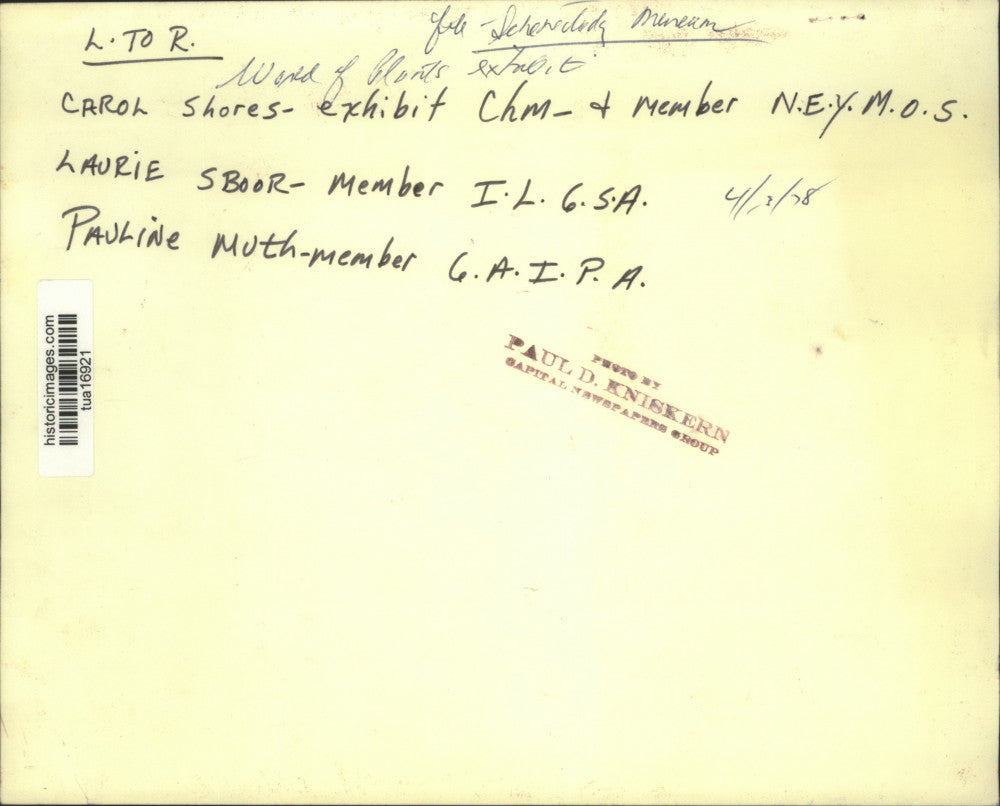 file - Schenectady Museum
L. TO R.
World of Plants exhibit
CAROL Shores- exhibit Chm- & member N.E.Y.M.O.S.
LAURIE SBOOR- Member I.L.G.S.A.
4/ /78
PAULINE MUth-member G.A.I.P.A.
historicimages.com
tua16921
PHOTO BY
PAUL D. KNISKERN
CAPITAL NEWSPAPERS GROUP